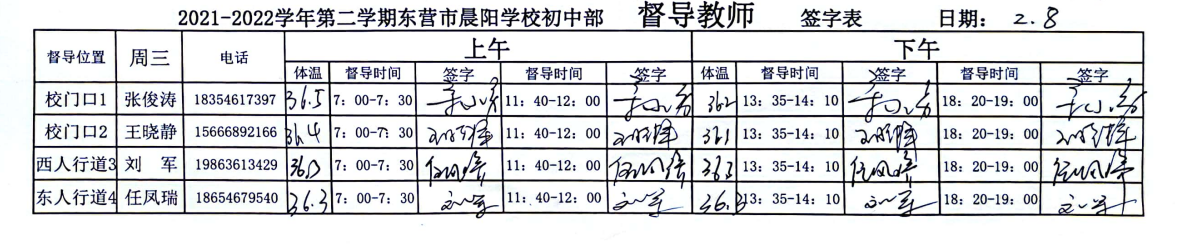 2021-2022学年第二学期东营市晨阳学校初中部 督导教师 签字表 日期: 2.8
督导位置 周三 电话 上午 下午
体温 督导时间 签字 督导时间 签字 体温 督导时间 签字 督导时间 签字
校门口1 张俊涛 18354617397 36.5 7:00-7:30 11:40-12:00 362 13:35-14:10 18:20-19:00
校门口2 王晓静 15666892166 36.4 7:00-7:30 11:40-12:00 36.1 13:35-14:10 18:20-19:00
西人行道3 刘 军 19863613429 7:00-7:30 11:40-12:00 36.3 13:35-14:10 18:20-19:00
东人行道4 任凤瑞 18654679540 36.3 7:00-7:30 刘军 11:40-12:00 刘军 13:35-14:10 刘军 18:20-19:00 刘军